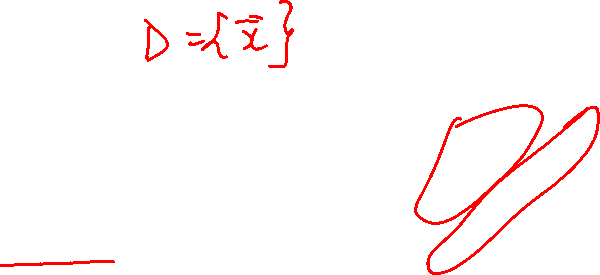 D = {x̄}